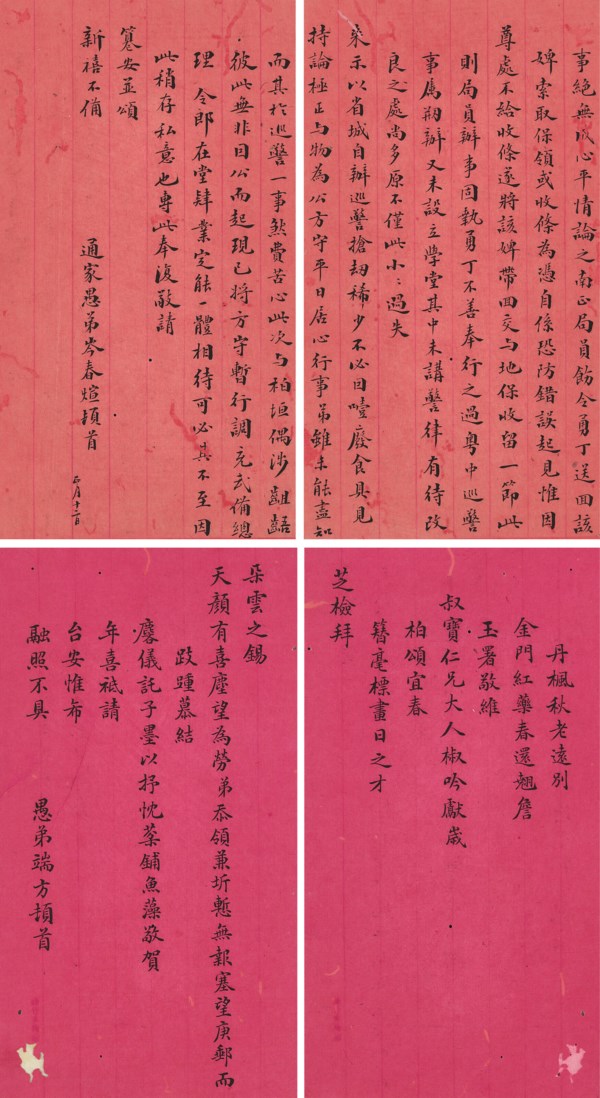 事絕無成心平情論之南正局員飭令勇丁送回該
婢索取保領或收條為憑自係恐防錯誤起見惟因
尊處不給收條遂將該婢帶回交与地保收留一節此
則局員辦事固執勇丁不善奉行之過粵中巡警
事屬剙辦又未設立學堂其中未講警律有待改
良之處尚多原不僅此小小過失
來示以省城自辦巡警搶刼稀少不必因噎廢食具見
持論極正与物為公方守平日居心行事弟雖未能盡知
而其於巡警一事煞費苦心此次与柏垣偶涉齟齬
彼此無非因公而起現已將方守暫行調充武備總
理 令郎在堂肄業定能一體相待可必其不至因
此稍存私意也專此奉復敬請
籑安並頌
新禧不備
通家愚弟岑春煊頓首
正月十二日
丹楓秋老遠別
金門紅藥春還翹詹
玉署敬維
叔寶仁兄大人椒吟獻歲
柏頌宜春
簪毫標畫日之才
芝檢拜
朵雲之錫
天顏有喜塵望為勞弟忝領兼圻慙無報塞望庚郵而
跂踵慕結
麐儀託子墨以抒忱蘂鋪魚藻敬賀
年喜祗請
台安惟希
融照不具
愚弟端方頓首